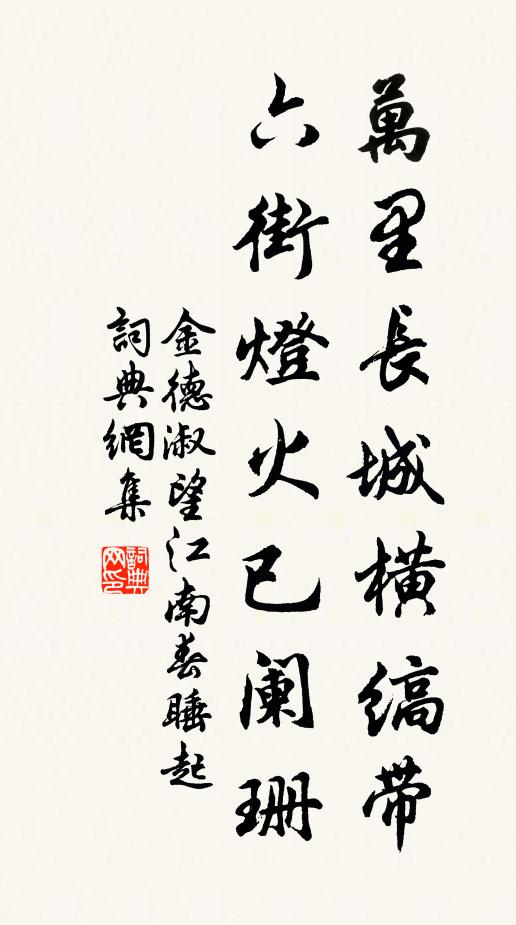 萬里長城橫縞帶
六街燈火已阑珊
金德淑望江南春睡起
詞典網集
詞典网印